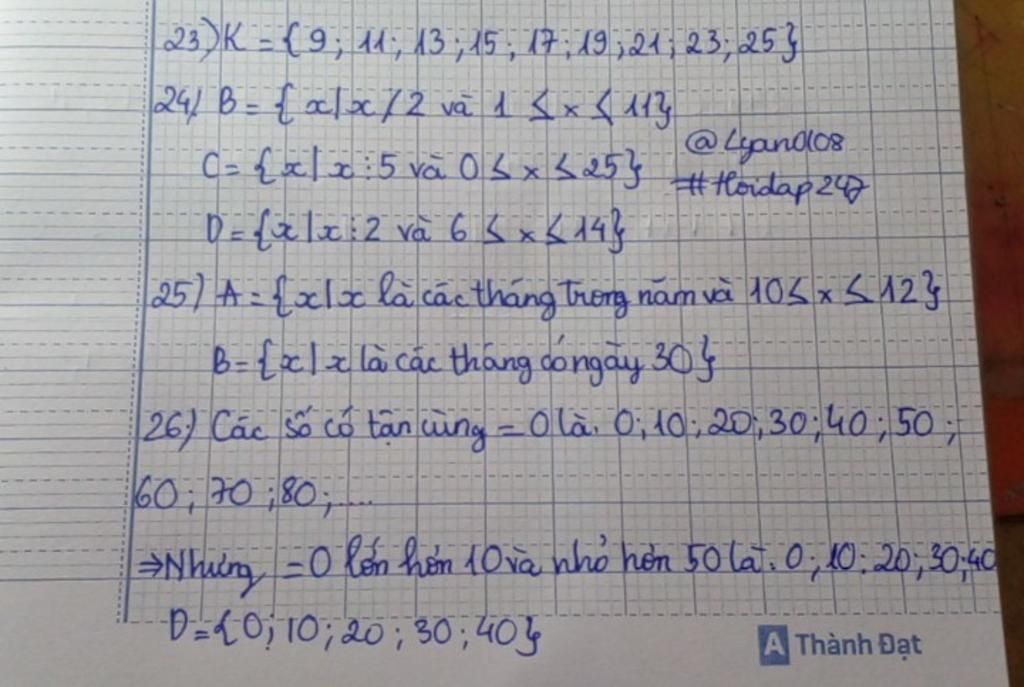 23) K = { 9 ; 11 ; 13 ; 15 ; 17 ; 19 ; 21 ; 23 ; 25 }
24) B = { x / x / 2 và 1 ≤ x ≤ 11 }
@Lyand108
C = { x | x : 5 và 0 ≤ x ≤ 25 }
#Hoidap247
D = { x | x : 2 và 6 ≤ x ≤ 14 }
25) A = { x | x là các tháng trong năm và 10 ≤ x ≤ 12 }
B = { x | x là các tháng có ngày 30 }
26) Các số có tận cùng = 0 là. 0 ; 10 ; 20 ; 30 ; 40 ; 50 ;
60 ; 70 ; 80 ; ....
⇒ Nhưng = 0 lớn hơn 10 và nhỏ hơn 50 là : 0 ; 10 ; 20 ; 30 ; 40
D = { 0 ; 10 ; 20 ; 30 ; 40 }
A Thành Đạt